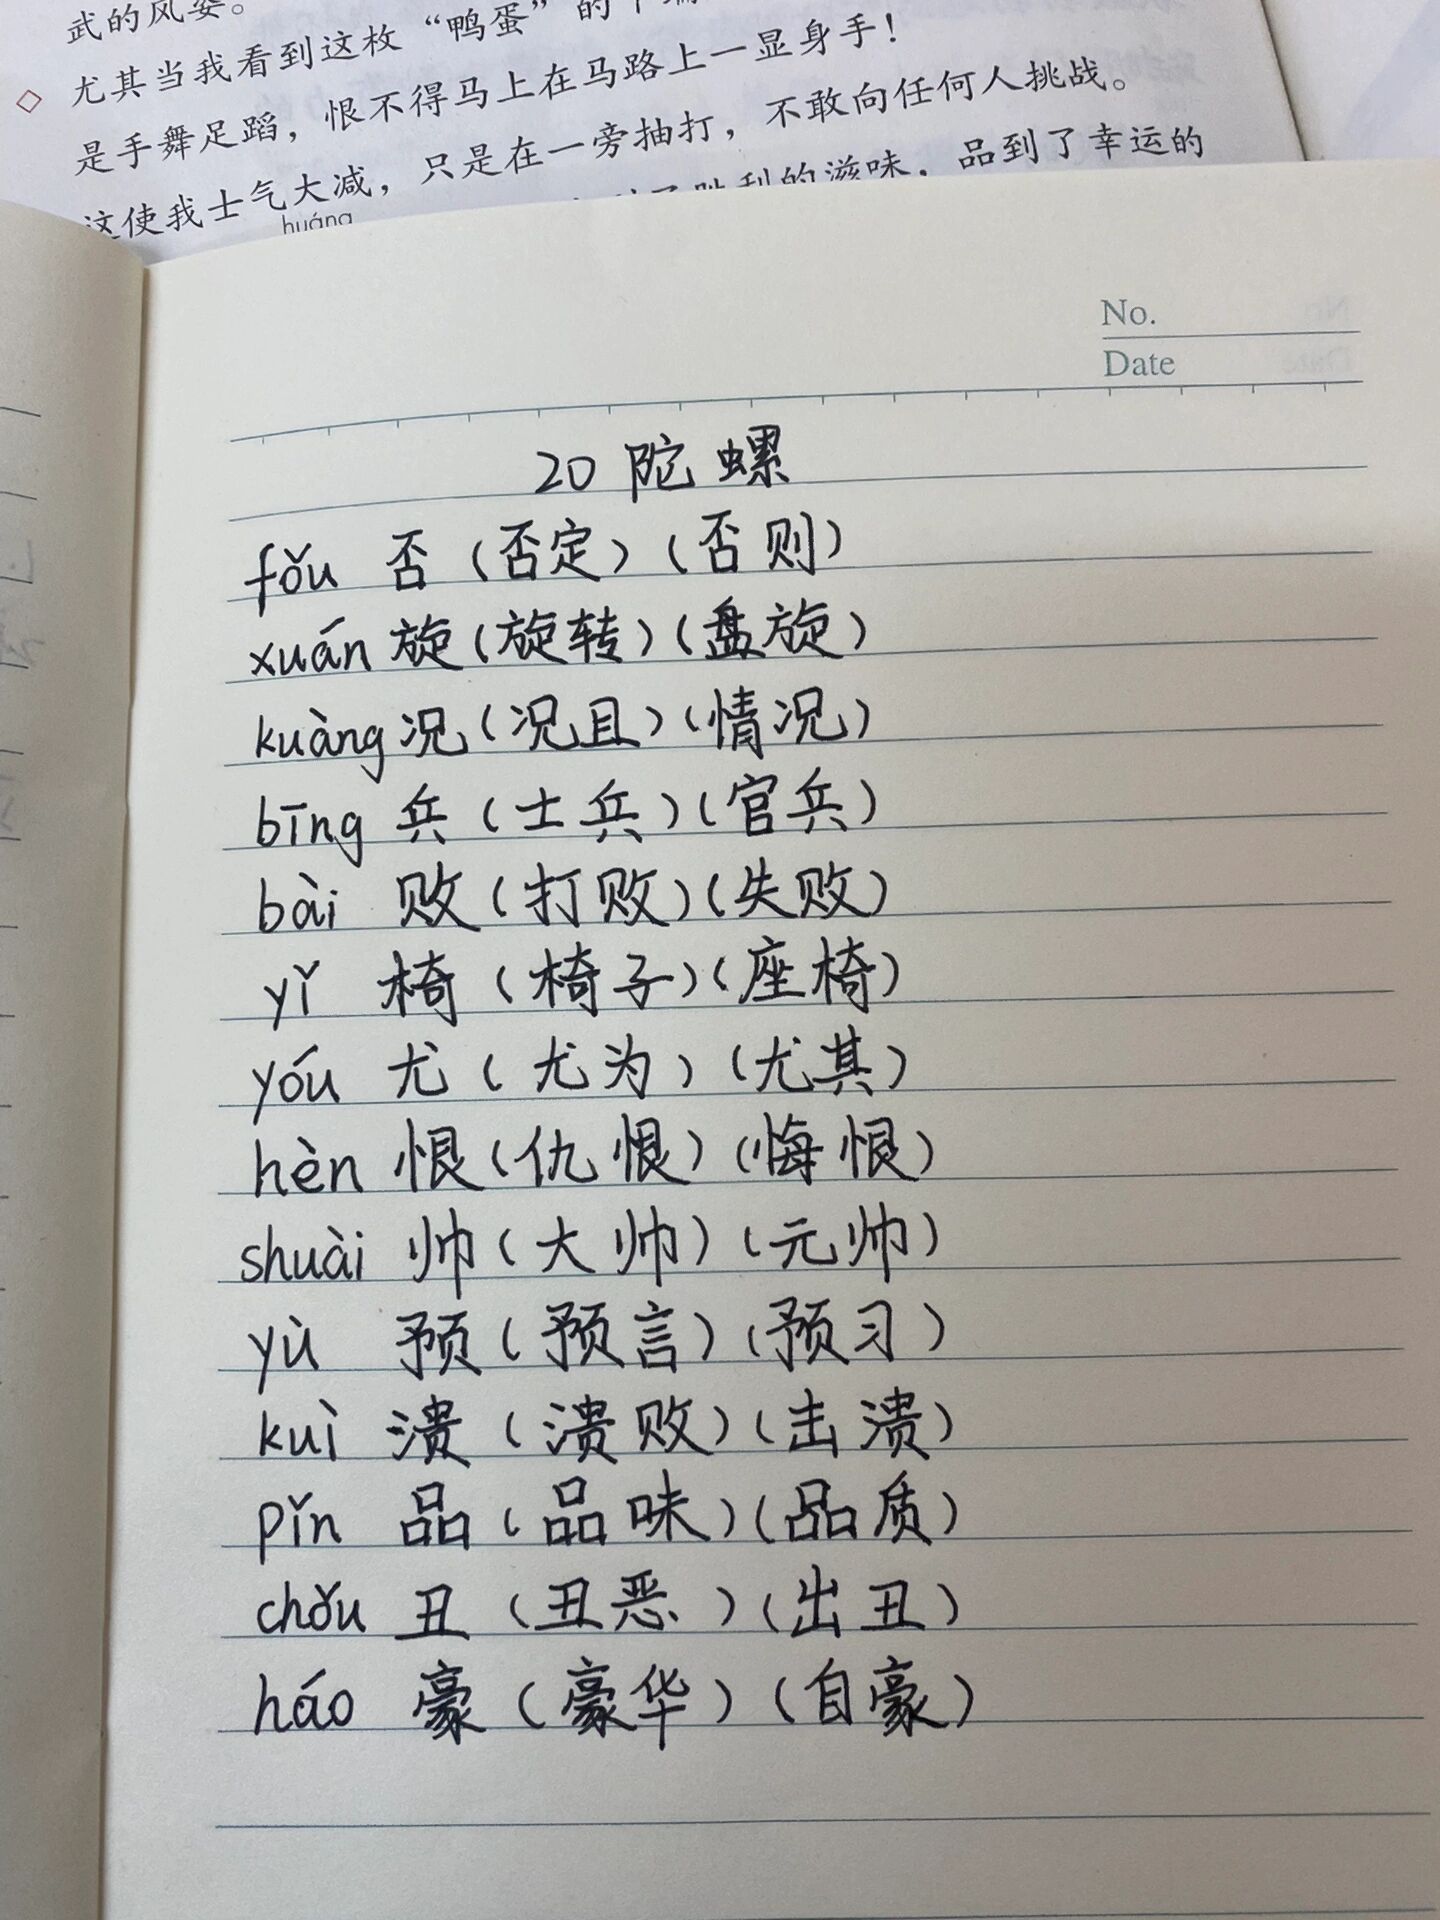 武的风姿。
尤其当我看到这枚“鸭蛋”的
是手舞足蹈，恨不得马上在马路上一显身手！
这使我士气大减，只是在一旁抽打，不敢向任何人挑战。
胜利的滋味，品到了幸运的
huáng
No.
Date
20 陀螺
fǒu 否（否定）（否则）
xuán 旋（旋转）（盘旋）
kuàng 况（况且）（情况）
bīng 兵（士兵）（官兵）
bài 败（打败）（失败）
yǐ 椅（椅子）（座椅）
yóu 尤（尤为）（尤其）
hèn 恨（仇恨）（悔恨）
shuài 帅（大帅）（元帅）
yù 预（预言）（预习）
kuì 溃（溃败）（击溃）
pǐn 品（品味）（品质）
chǒu 丑（丑恶）（出丑）
háo 豪（豪华）（自豪）